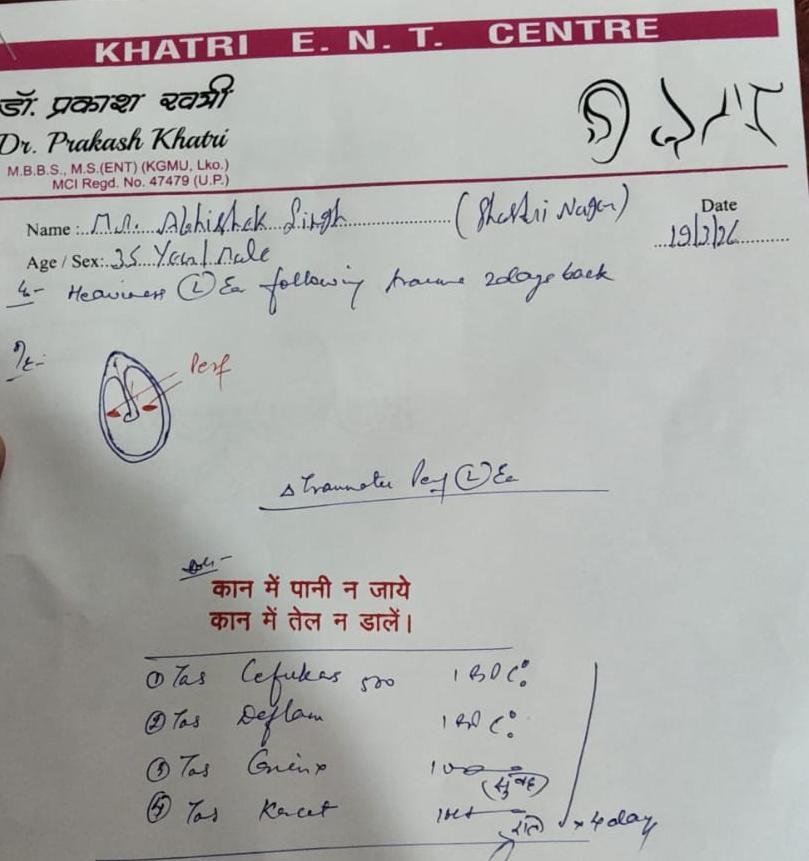 KHATRI E. N. T. CENTRE
डॉ. प्रकाश खत्री
Dr. Prakash Khatri
M.B.B.S., M.S.(ENT) (KGMU, Lko.)
MCI Regd. No. 47479 (U.P.)
Name : Mr. Abhishek Singh (Shastri Nagar)
Date
Age / Sex: 35 Year/Male
Heaviness (L) Ear following trauma 2 days back
Perf
Δ Traumatic Perf (L) Ear
कान में पानी न जाये
कान में तेल न डालें।
① Tab 500 1 BD
② Tab Deflam 1 BD
③ Tab (सुबह)
④ Tab रात x 4 day